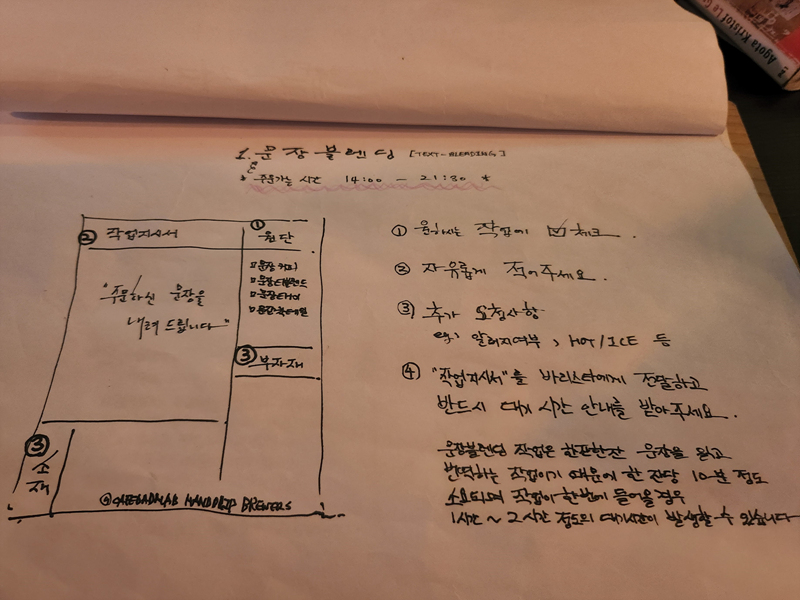 Agota Kristof Le G
1. 문장블렌딩 [TEXT-BLENDING]
* 주문가능 시간 14:00 - 21:30 *
② 작업지시서
"주문하신 문장을
내려 드립니다"
① 원단
□ 문장커피
□ 문장
□ 문장
□ 문장칵테일
③ 부자재
③ 소재
HANDDRIP BREWERS
① 원하시는 작업에 ☑ 체크.
② 자유롭게 적어주세요.
③ 추가 요청사항
ex) 알러지여부, HOT/ICE 등
④ "작업지시서"를 바리스타에게 전달하고
반드시 대기 시간 안내를 받아주세요.
문장블렌딩 작업은 한잔한잔 문장을 읽고
번역하는 작업이기 때문에 한 잔당 10분 정도
소요되며 작업이 한번에 들어올 경우
1시간 ~ 2시간 정도의 대기시간이 발생할 수 있습니다